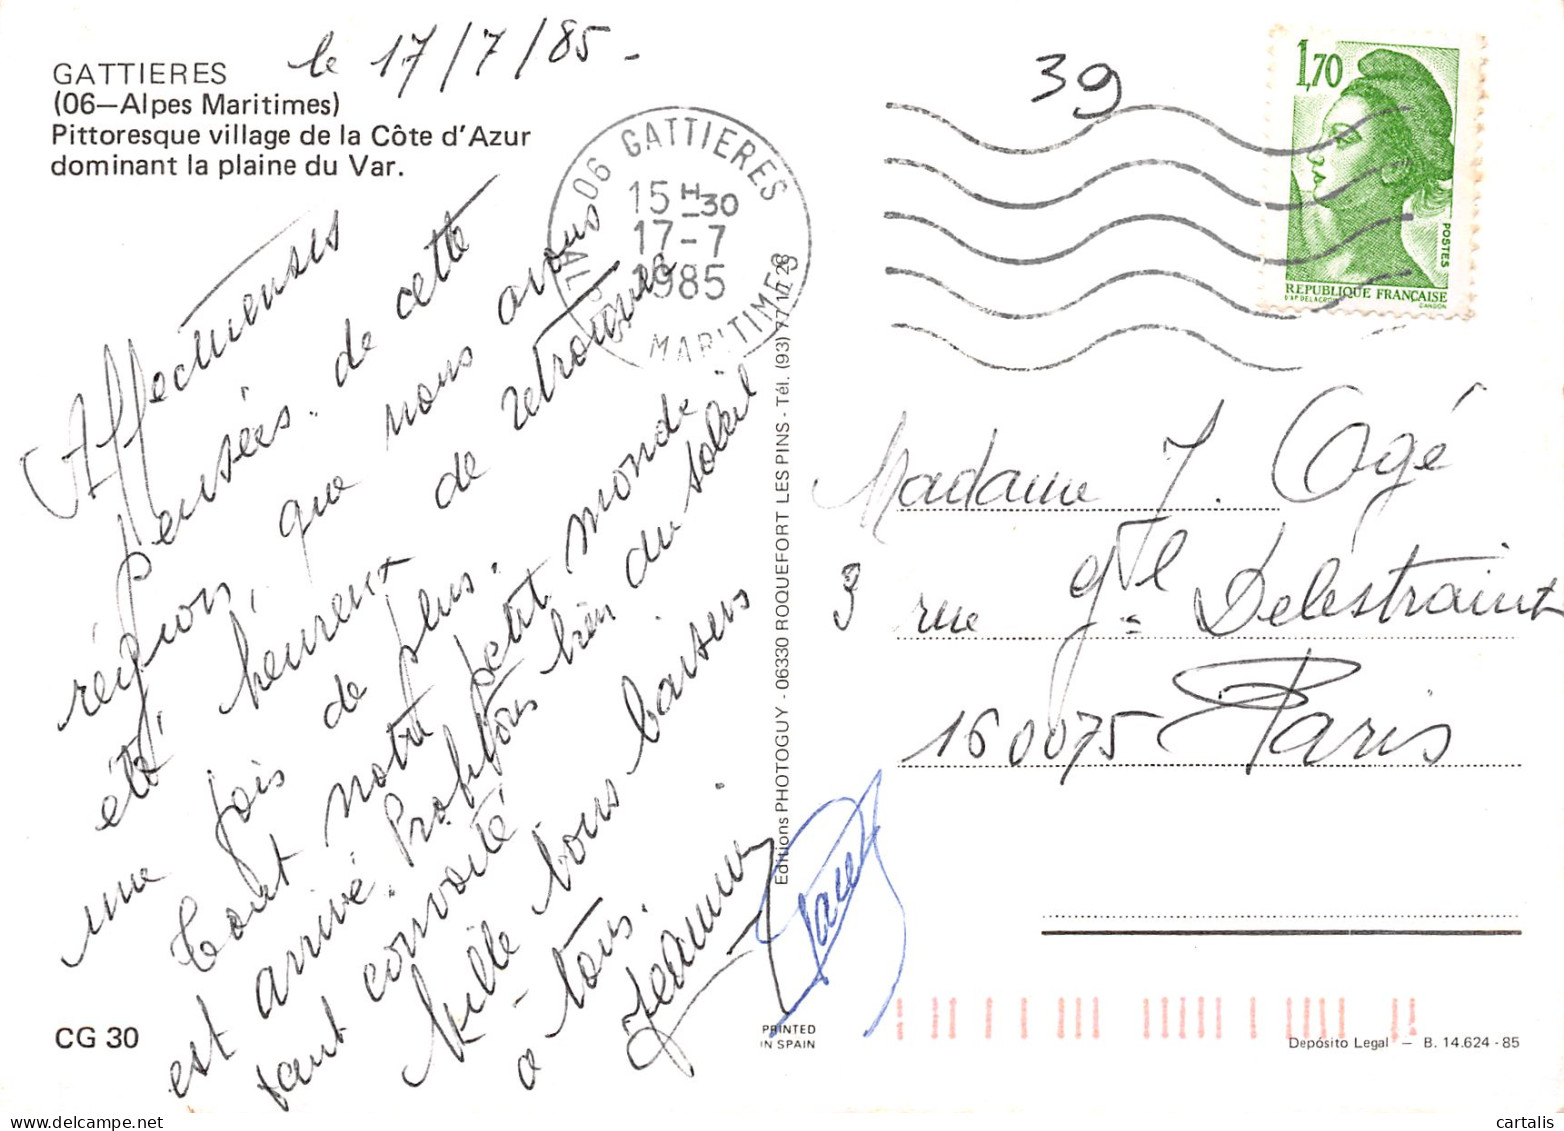 GATTIERES
(06—Alpes Maritimes)
Pittoresque village de la Côte d'Azur
dominant la plaine du Var.
le 17/7/85 -
39
06 GATTIERES
15 H-30
17-7
1985
ALPES MARITIMES
1,70
POSTES
REPUBLIQUE FRANÇAISE
D'AP. DELACROIX
GANDON
Affectueuses
pensées. de cette
région, que nous avons
été, heureux de retrouver
une fois de plus.
Tout notre petit monde
est arrivé. Profitons bien du soleil
tant convoité
Mille bons baisers
a - tous.
Jeannine
Madame J. Ogé
3 rue Gl Delestraint
160075 Paris
Editions PHOTOGUY - 06330 ROQUEFORT LES PINS - Tél. (93) 77 17 28
CG 30
PRINTED
IN SPAIN
Depósito Legal — B. 14.624 - 85
cartalis